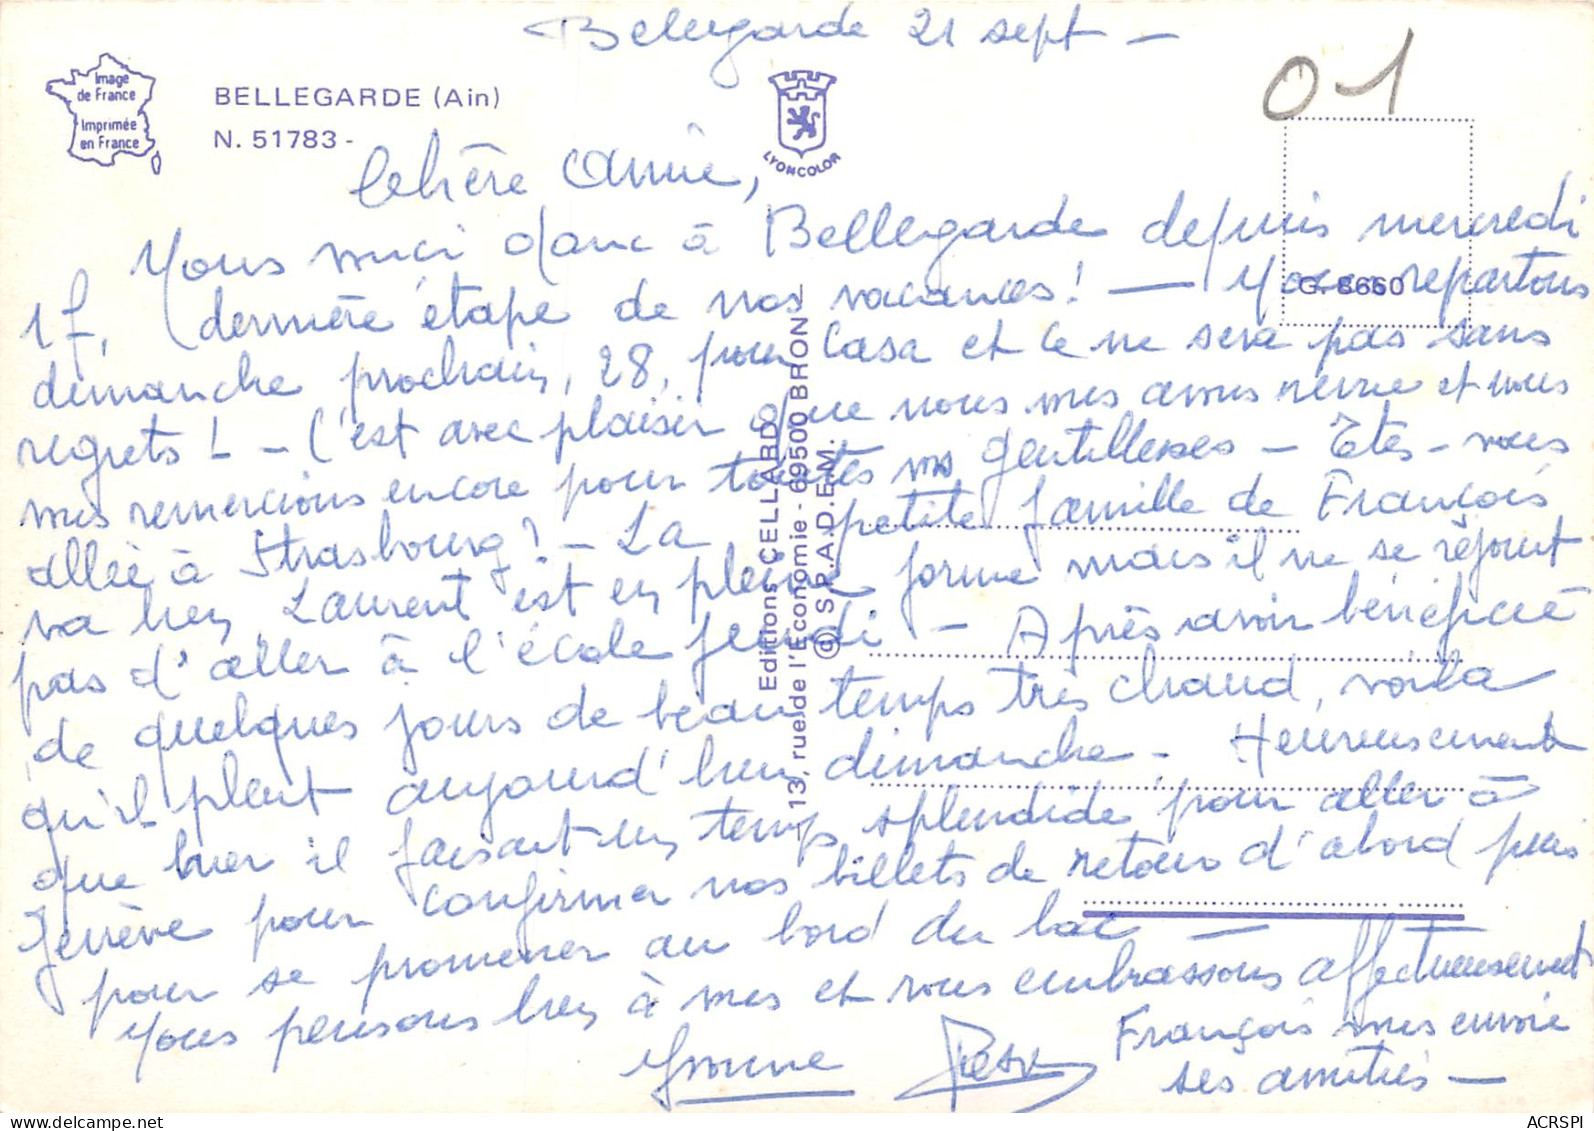 Bellegarde 21 sept –
01
Image
de France
Imprimée
en France
BELLEGARDE (Ain)
N. 51783 -
LYONCOLOR
G. 6660
Editions CELLARD
13, rue de l'Economie - 69500 BRON
© S.P.A.D.E.M.
Chère Annie,
Nous voici donc à Bellegarde depuis mercredi
17, (dernière étape de nos vacances! — Nous repartons
dimanche prochain, 28, pour Casa et ce ne sera pas sans
regrets ! – C'est avec plaisir que nous vous avons revue et nous
vous remercions encore pour toutes vos gentillesses – Etes-vous
allée à Strasbourg? – La petite famille de François
va bien, Laurent est en pleine forme mais il ne se réjouit
pas d'aller à l'école jeudi – Après avoir bénéficié
de quelques jours de beau temps très chaud, voilà
qu'il pleut aujourd'hui dimanche – Heureusement
que hier il faisait un temps splendide pour aller à
Genève pour confirmer nos billets de retour d'abord puis
pour se promener au bord du lac —
Nous pensons bien à vous et vous embrassons affectueusement
Yvonne
François vous envoie
ses amitiés –
ACRSPI